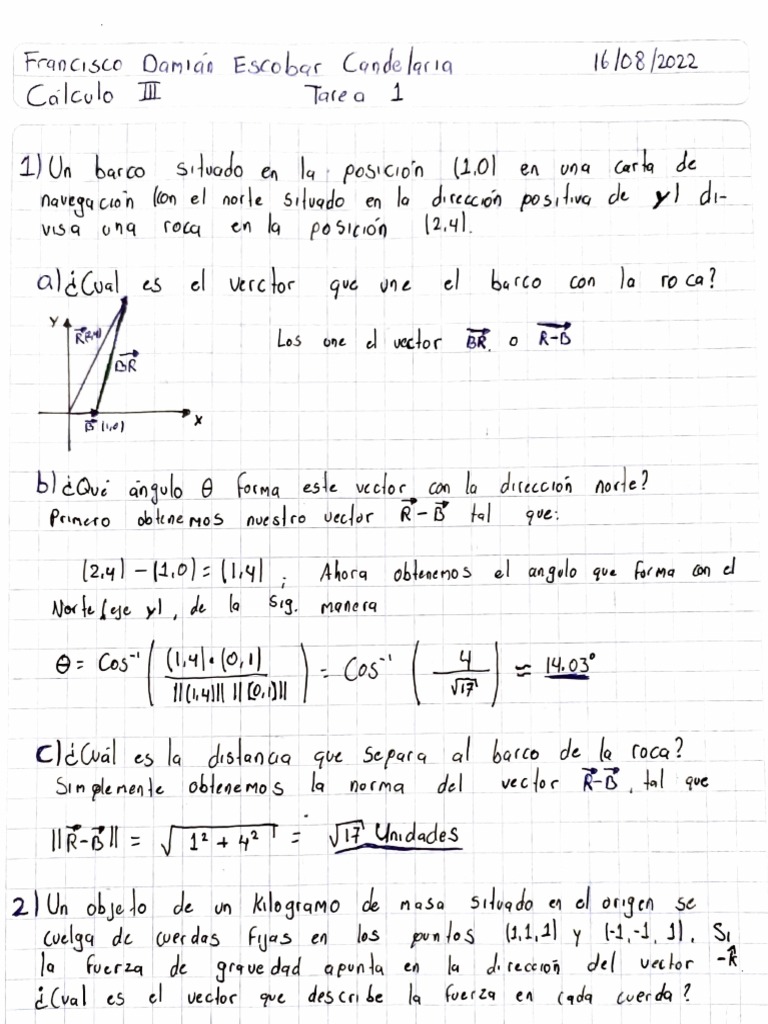 Francisco Damián Escobar Candelaria 16/08/2022
Cálculo III Tarea 1
1) Un barco situado en la posición (1,0) en una carta de
navegación (con el norte situado en la dirección positiva de y) di-
visa una roca en la posición (2,4).
a) ¿Cual es el verctor que une el barco con la roca?
Y
R(2,4)
Los une el vector BR, o R-B
BR
B (1,0)
X
b) ¿Qué ángulo θ forma este vector con la dirección norte?
Primero obtenemos nuestro vector R-B tal que:
(2,4) - (1,0) = (1,4) ; Ahora obtenemos el angulo que forma con el
Norte (eje y), de la sig. manera
θ = Cos⁻¹ ( (1,4)•(0,1) / ||(1,4)|| ||(0,1)|| ) = Cos⁻¹ ( 4 / √17 ) ≈ 14.03°
c) ¿Cuál es la distancia que separa al barco de la roca?
Simplemente obtenemos la norma del vector R-B, tal que
||R-B|| = √1² + 4² = √17 Unidades
2) Un objeto de un kilogramo de masa situado en el origen se
cuelga de cuerdas fijas en los puntos (1,1,1) y (-1,-1,1). Si
la fuerza de gravedad apunta en la dirección del vector -k
¿Cual es el vector que describe la fuerza en cada cuerda?